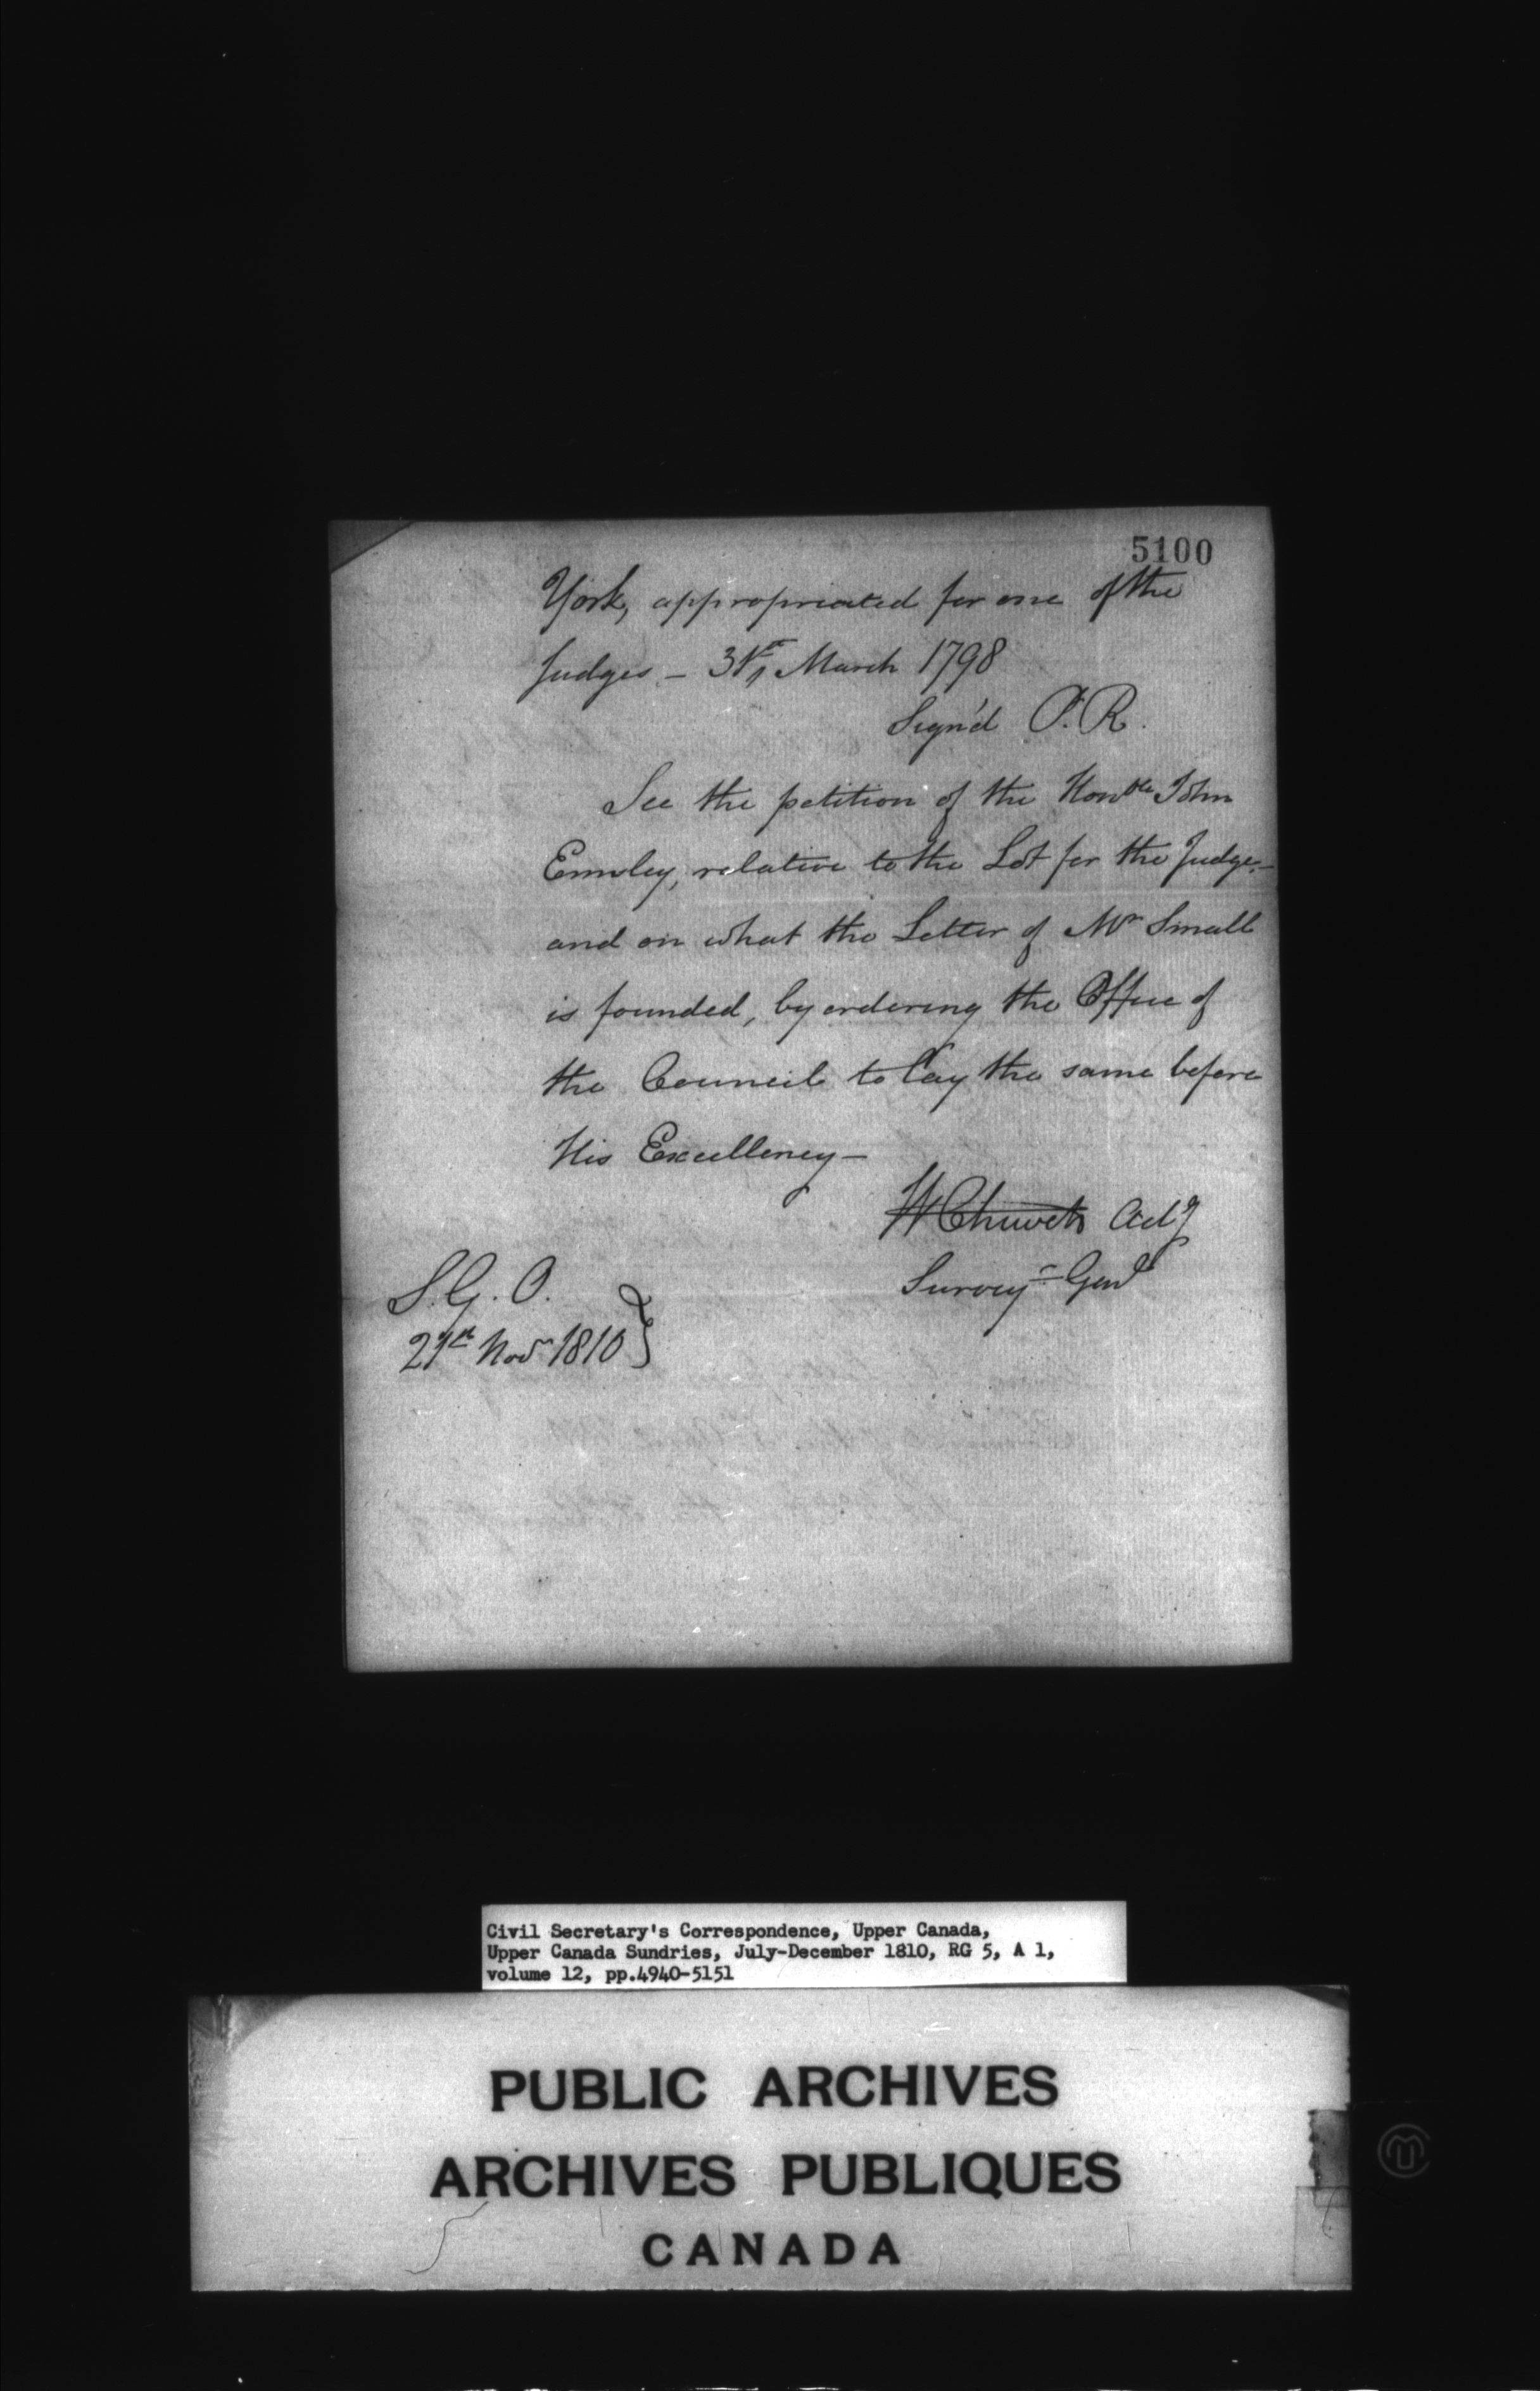 5100
York, appropriated for one of the
Judges — 31st March 1798
Sign'd P. R.
See the petition of the Honble John
Emsley, relative to the Lot for the Judge —
and on what the Letter of Mr Small
is founded, by ordering the Office of
the Council to lay the same before
His Excellency —
W Chewett Actg
Surveyr Genl
S. G. O.
27th Novr 1810
Civil Secretary's Correspondence, Upper Canada,
Upper Canada Sundries, July-December 1810, RG 5, A 1,
volume 12, pp.4940-5151
PUBLIC ARCHIVES
ARCHIVES PUBLIQUES
CANADA